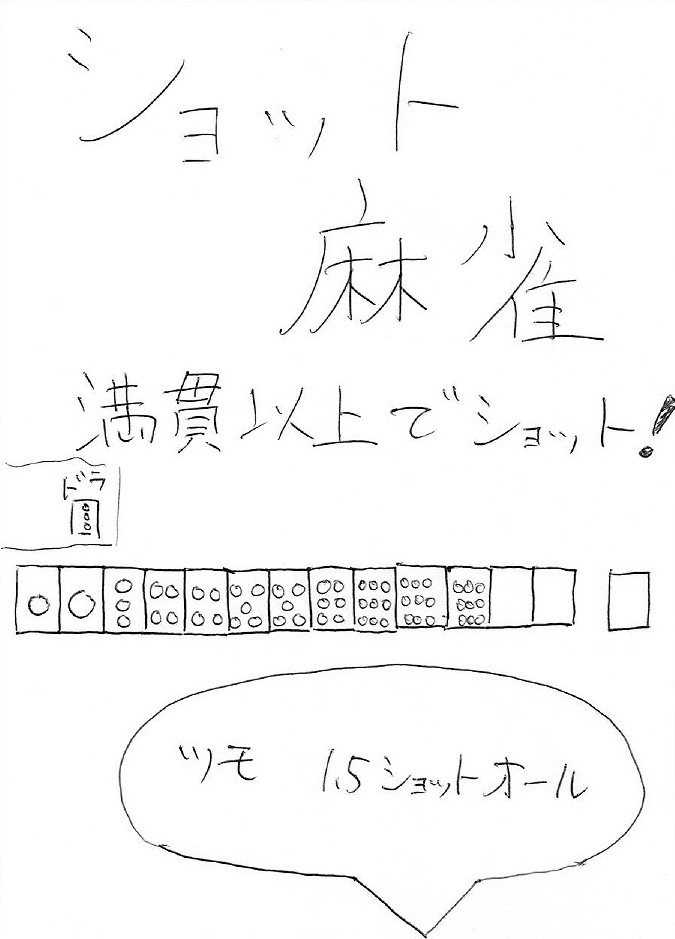 ショット
麻雀
満貫以上でショット!
ドラ
ツモ 1.5ショットオール